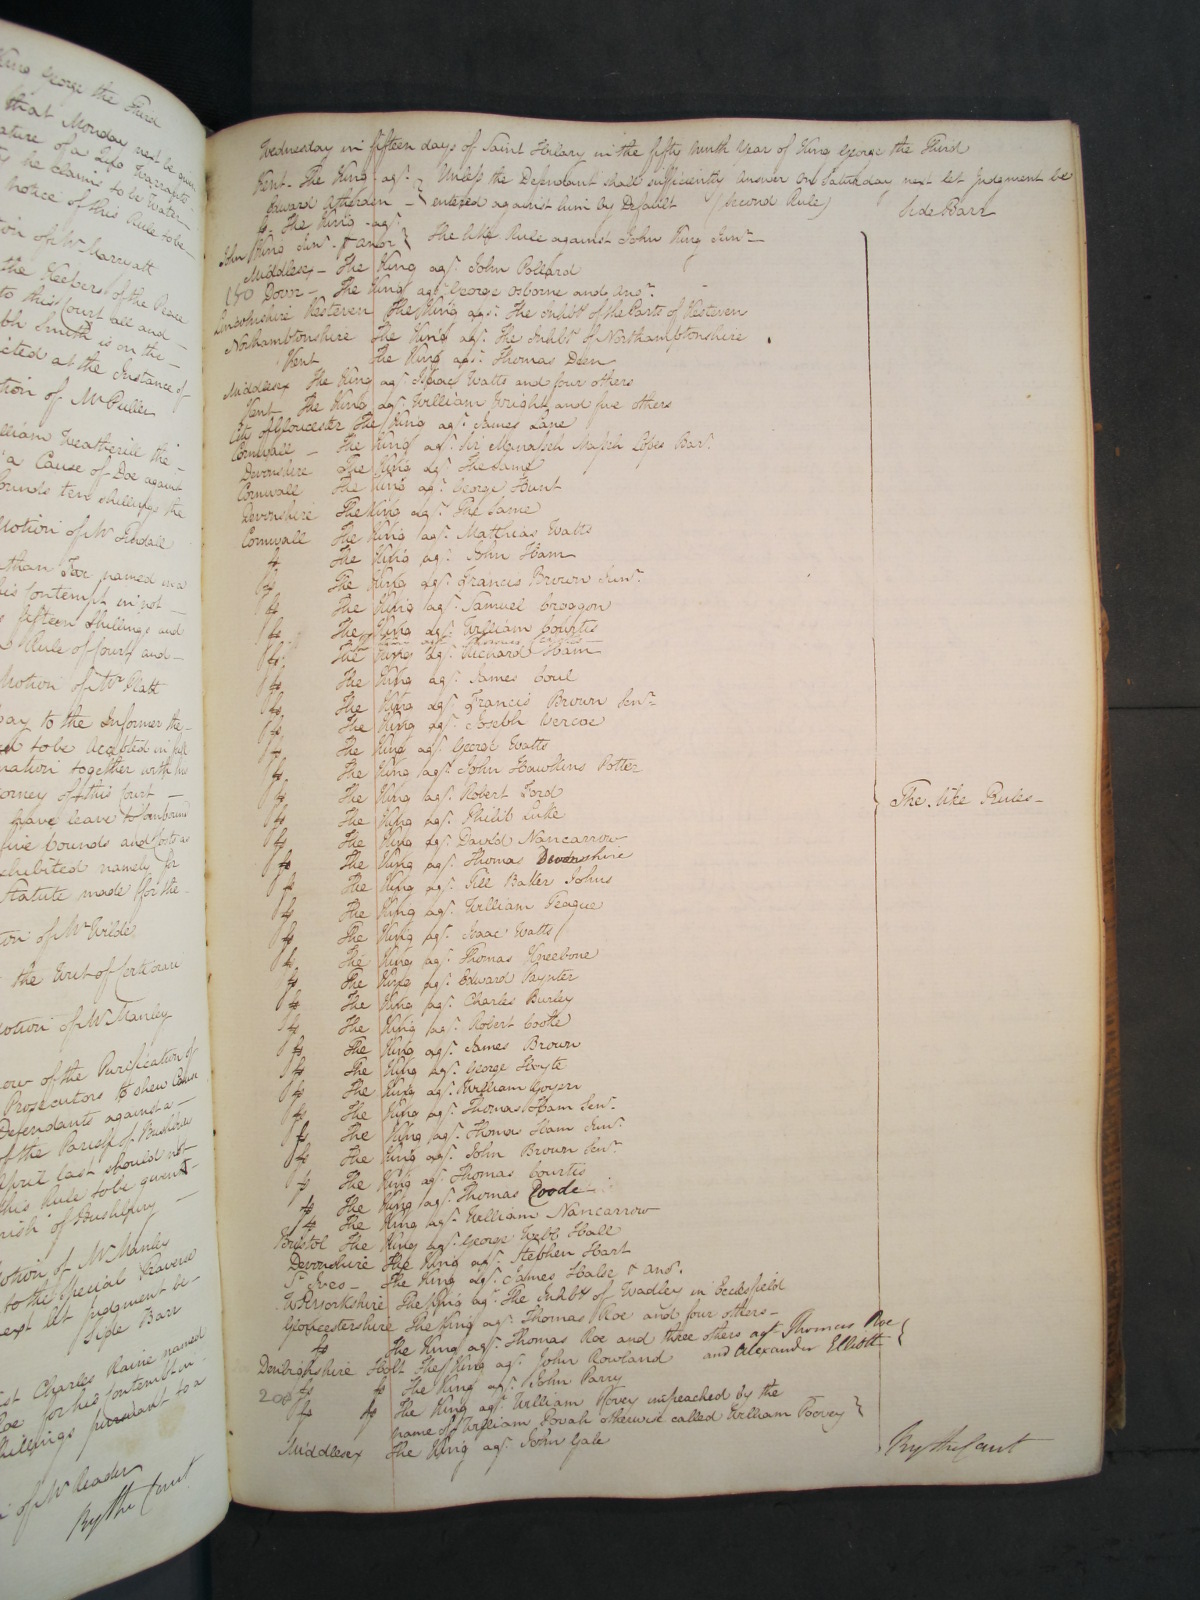 King George the Third
that Monday next be given
nature of a Quo Warranto
he claims to be Water
notice of this Rule to be
tion of Mr Marryatt
the Keepers of the Peace
to this Court all and
Smith is on the
cted at the Instance of
tion of Mr Puller
illiam Weatherill the
a Cause of Doe against
ounds ten shillings the
Motion of Mr Tindall
than Foe named in a
his Contempt in not
fifteen shillings and
Rule of Court and
Motion of Mr Platt
pay to the Informer the
to be accepted in full
mation together with his
orney of this Court
have leave to Compound
five pounds and Costs as
exhibited namely for
Statute made for the
tion of Mr Wilde
the Writ of Certiorari
Motion of Mr Manley
ow of the Purification of
Prosecutors to shew Cause
Defendants against a
of the Parish of Bushley
April last should not
this Rule to be given
arish of Bushley
otion of Mr Manley
to the special Traverse
ext let Judgment be
Side Barr
st Charles Raine named
oe for his Contempt in
hillings pursuant to a
of Mr Reader
By the Court
Wednesday in fifteen days of Saint Hilary in the fifty ninth Year of King George the Third
Kent - The King agst. Unless the Defendant shall sufficiently answer on Saturday next let Judgment be
Edward Atherden - entered against him by Default (second Rule) Side Barr
fs. The King agst.
John King Junr. & anor The like Rule against John King Junr.
Middlesex - The King agst. John Pollard
150 Dover - The King agst. George Osborne and anor.
Lincolnshire Kesteven The King agst. The Inhbts of the Parts of Kesteven
Northamptonshire The King agst. The Inhbts of Northamptonshire
Kent The King agst. Thomas Deen
Middlesex The King agst. Isaac Watts and four others
Kent The King agst. William Wright and five others
City of Gloucester The King agst. James Lane
Cornwall - The King agst. Sir Manasseh Masseh Lopes Bart.
Devonshire The King agst. The Same
Cornwall The King agst. George Hunt
Devonshire The King agst. The Same
Cornwall The King agst. Matthias Watts
fs The King agst. John Ham
fs The King agst. Francis Brown Junr.
fs The King agst. Samuel Croggon
fs The King agst. William Courtis
fs. The King agst. Richard Ham
fs The King agst. James Coul
fs The King agst. Francis Brown Senr.
fs The King agst. Joseph Vercoe
fs The King agst. George Watts
fs The King agst. John Hawkins Potter
fs The King agst. Robert Ford
fs The King agst. Philip Luke
fs The King agst. David Nancarrow
fs The King agst. Thomas Devonshire
fs The King agst. Till Baller Johns
fs The King agst. William Teague
fs The King agst. Isaac Watts
fs The King agst. Thomas Kneebone
fs The King agst. Edward Paynter
fs The King agst. Charles Burley
fs The King agst. Robert Cooke
fs The King agst. James Brown
fs The King agst. George Hoyte
fs The King agst. William Goyen
fs The King agst. Thomas Ham Senr.
fs The King agst. Thomas Ham Junr.
fs The King agst. John Brown Senr.
fs The King agst. Thomas Courtis
fs The King agst. Thomas Poode
fs The King agst. William Nancarrow
Bristol The King agst. George Webb Hall
Devonshire The King agst. Stephen Hart
St Ives - The King agst. James Halse & anor.
W R Yorkshire The King agst. The Inhbts of Wadley in Ecclesfield
Gloucestershire The King agst. Thomas Roe and four others
fs The King agst. Thomas Roe and three others agt Thomas Roe
and Alexander Elliott
Denbighshire Holt The King agst. John Rowland
200 fs fs The King agst. John Parry
fs fs The King agst. William Povey impeached by the
name of William Povah otherwise called William Poovey
Middlesex The King agst. John Gale
The like Rules
By the Court